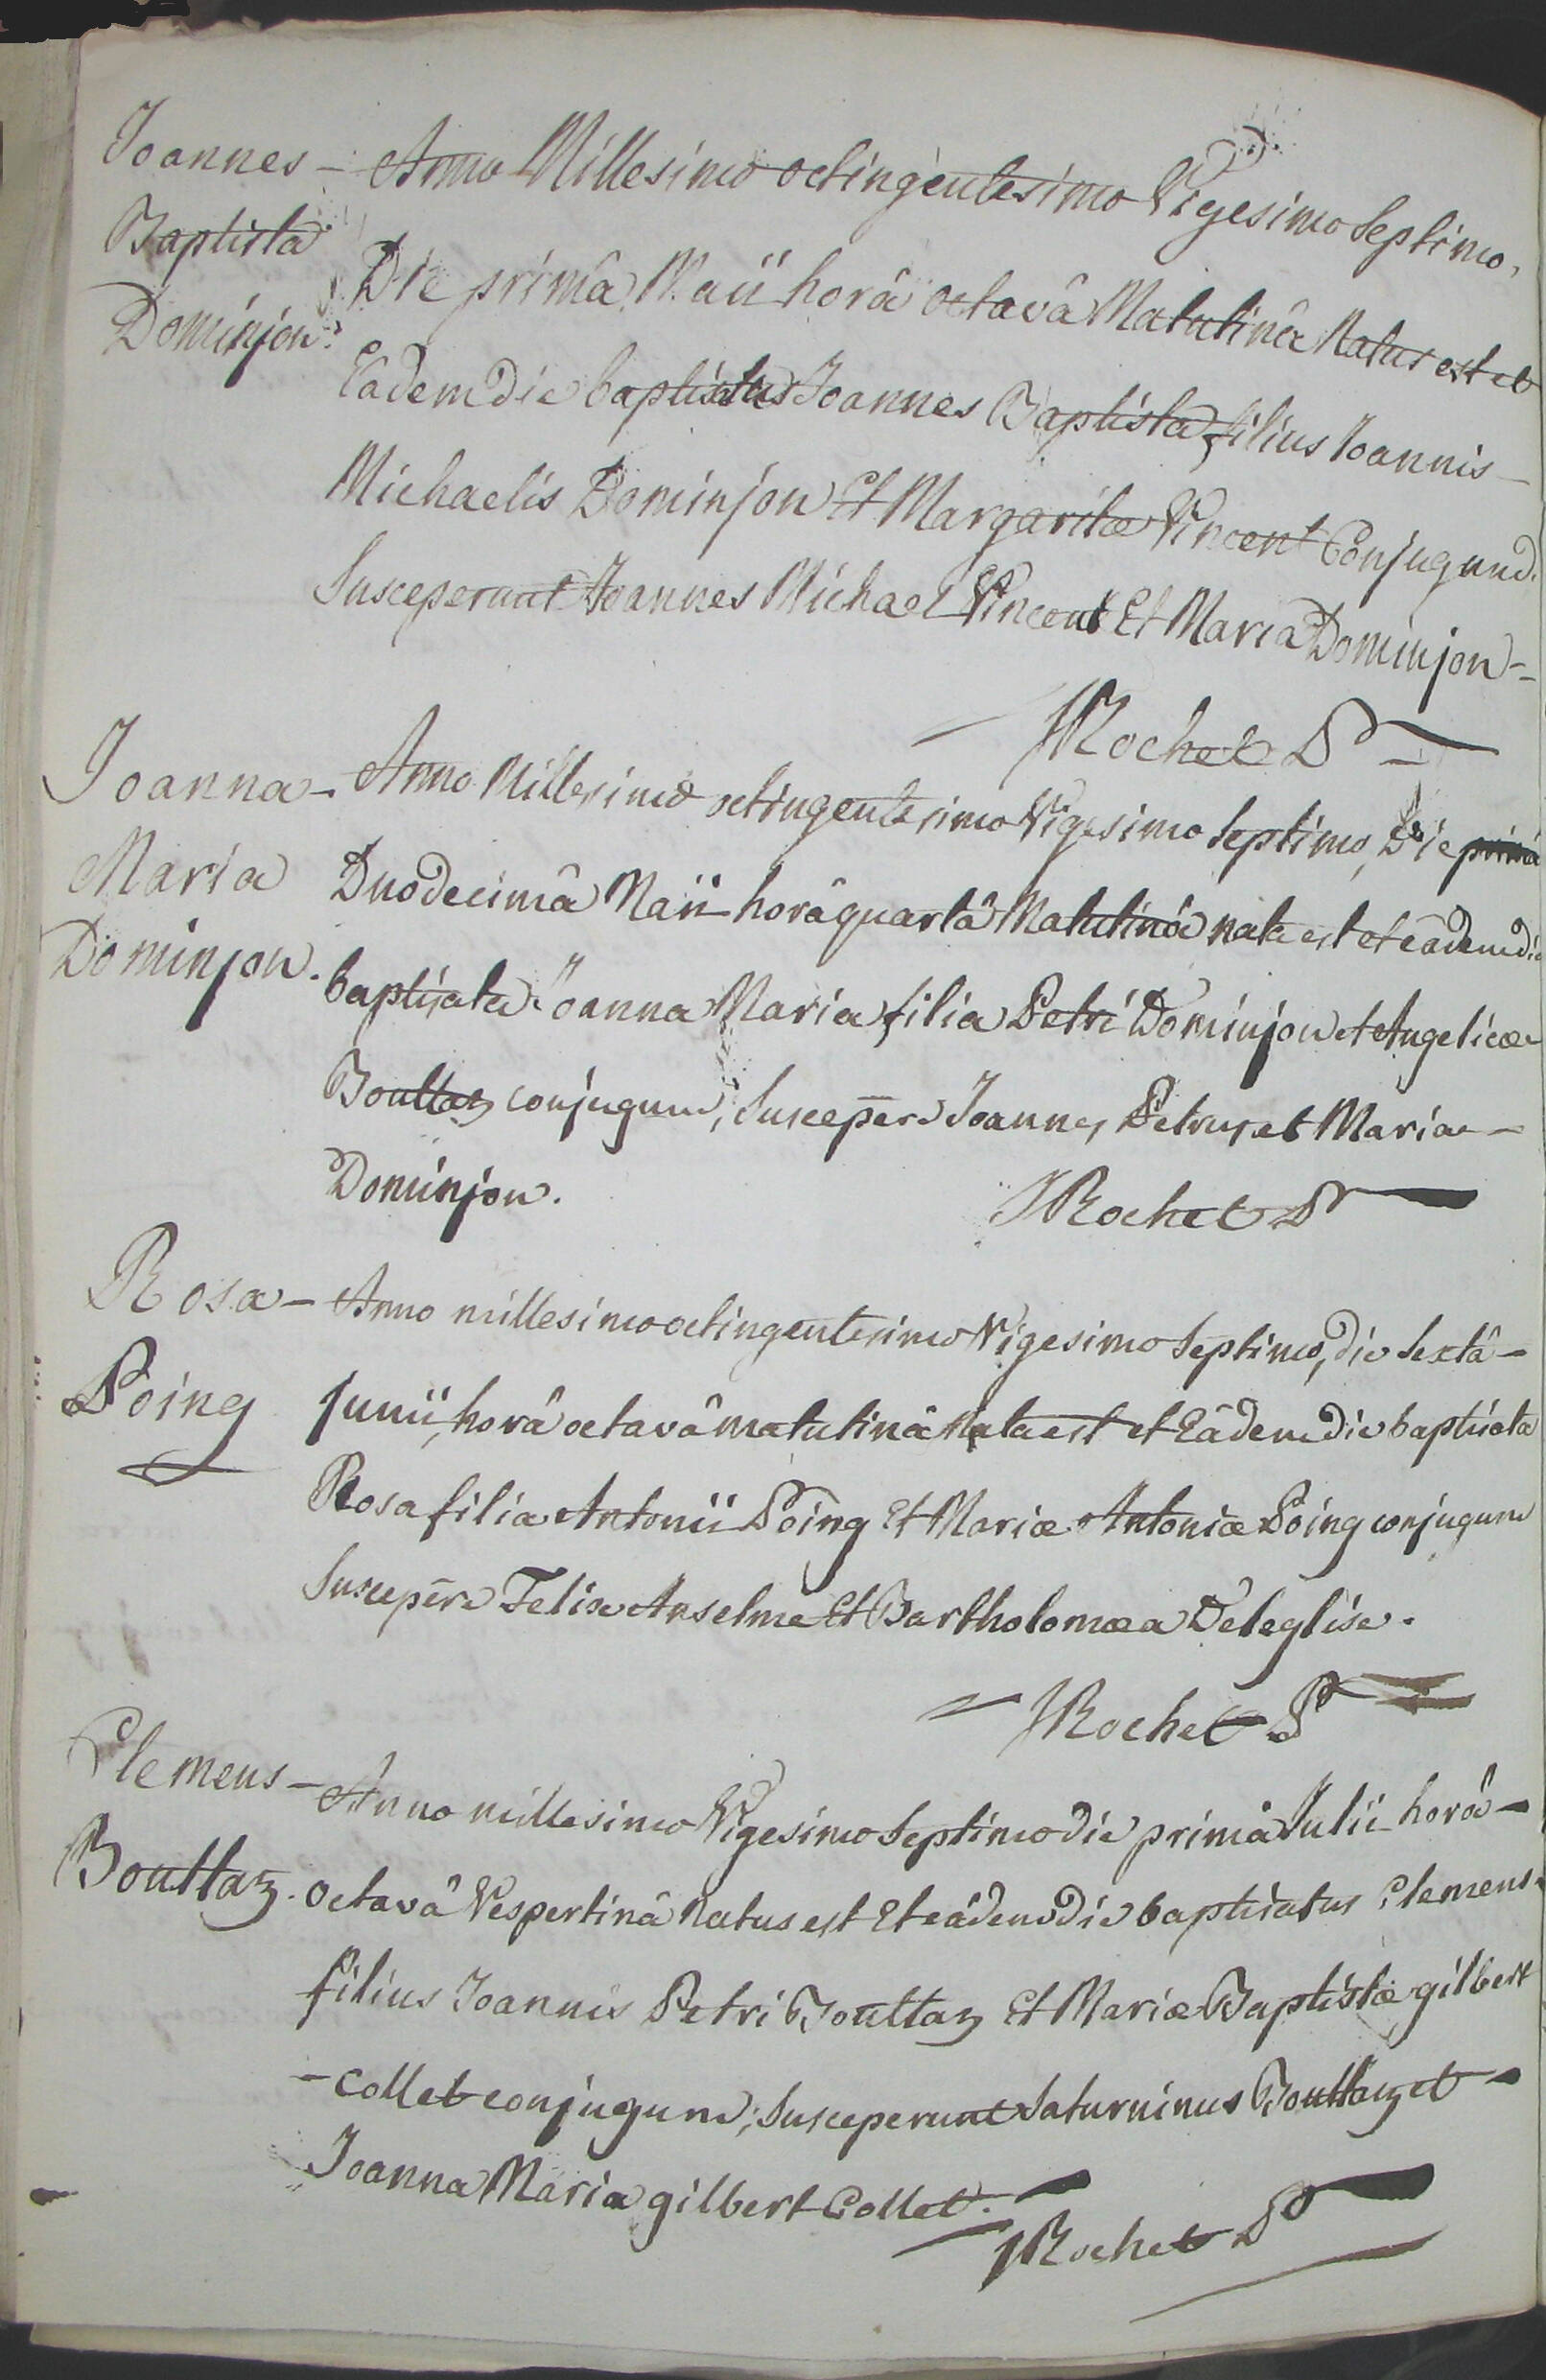 Joannes - Anno Millesimo octingentesimo Vigesimo Septimo,
Baptista
Dominjon.
Die primâ Maii horâ octavâ Matutinâ Natus est et
Eâdem die baptisatus Joannes Baptista filius Joannis -
Michaelis Dominjon Et Margaritæ Vincent Conjugum.
Susceperunt Joannes Michael Vincent Et Maria Dominjon -
JRochet Pr
Joanna - Anno Millesimo octingentesimo Vigesimo Septimo, Die primâ
Maria
Dominjon.
Duodecimâ Maii horâ quartâ Matutinâ nata est et eâdem die
baptisata Joanna Maria filia Petri Dominjon et Angelicæ
Bouttaz conjugum, Suscepēre Joannes Petrus et Maria -
Dominjon.
JRochet Pr
Rosa - Anno millesimo octingentesimo Vigesimo Septimo, die Sextâ -
Poing
Junii, horâ octavâ matutinâ Nata est et Eâdem die baptisata
Rosa filia Antonii Poing Et Mariæ Antoniæ Poing conjugum
Suscepēre Felix Anselme Et Bartholomæa Deleglise.
JRochet Pr
Clemens - Anno millesimo Vigesimo Septimo die primâ Julii horâ -
Bouttaz.
octavâ Vespertinâ Natus est Et eâdem die baptisatus Clemens
filius Joannis Petri Bouttaz Et Mariæ Baptistæ gilbert
- collet conjugum; Susceperunt Saturninus Bouttaz et -
Joanna Maria gilbert Collet. -
JRochet Pr